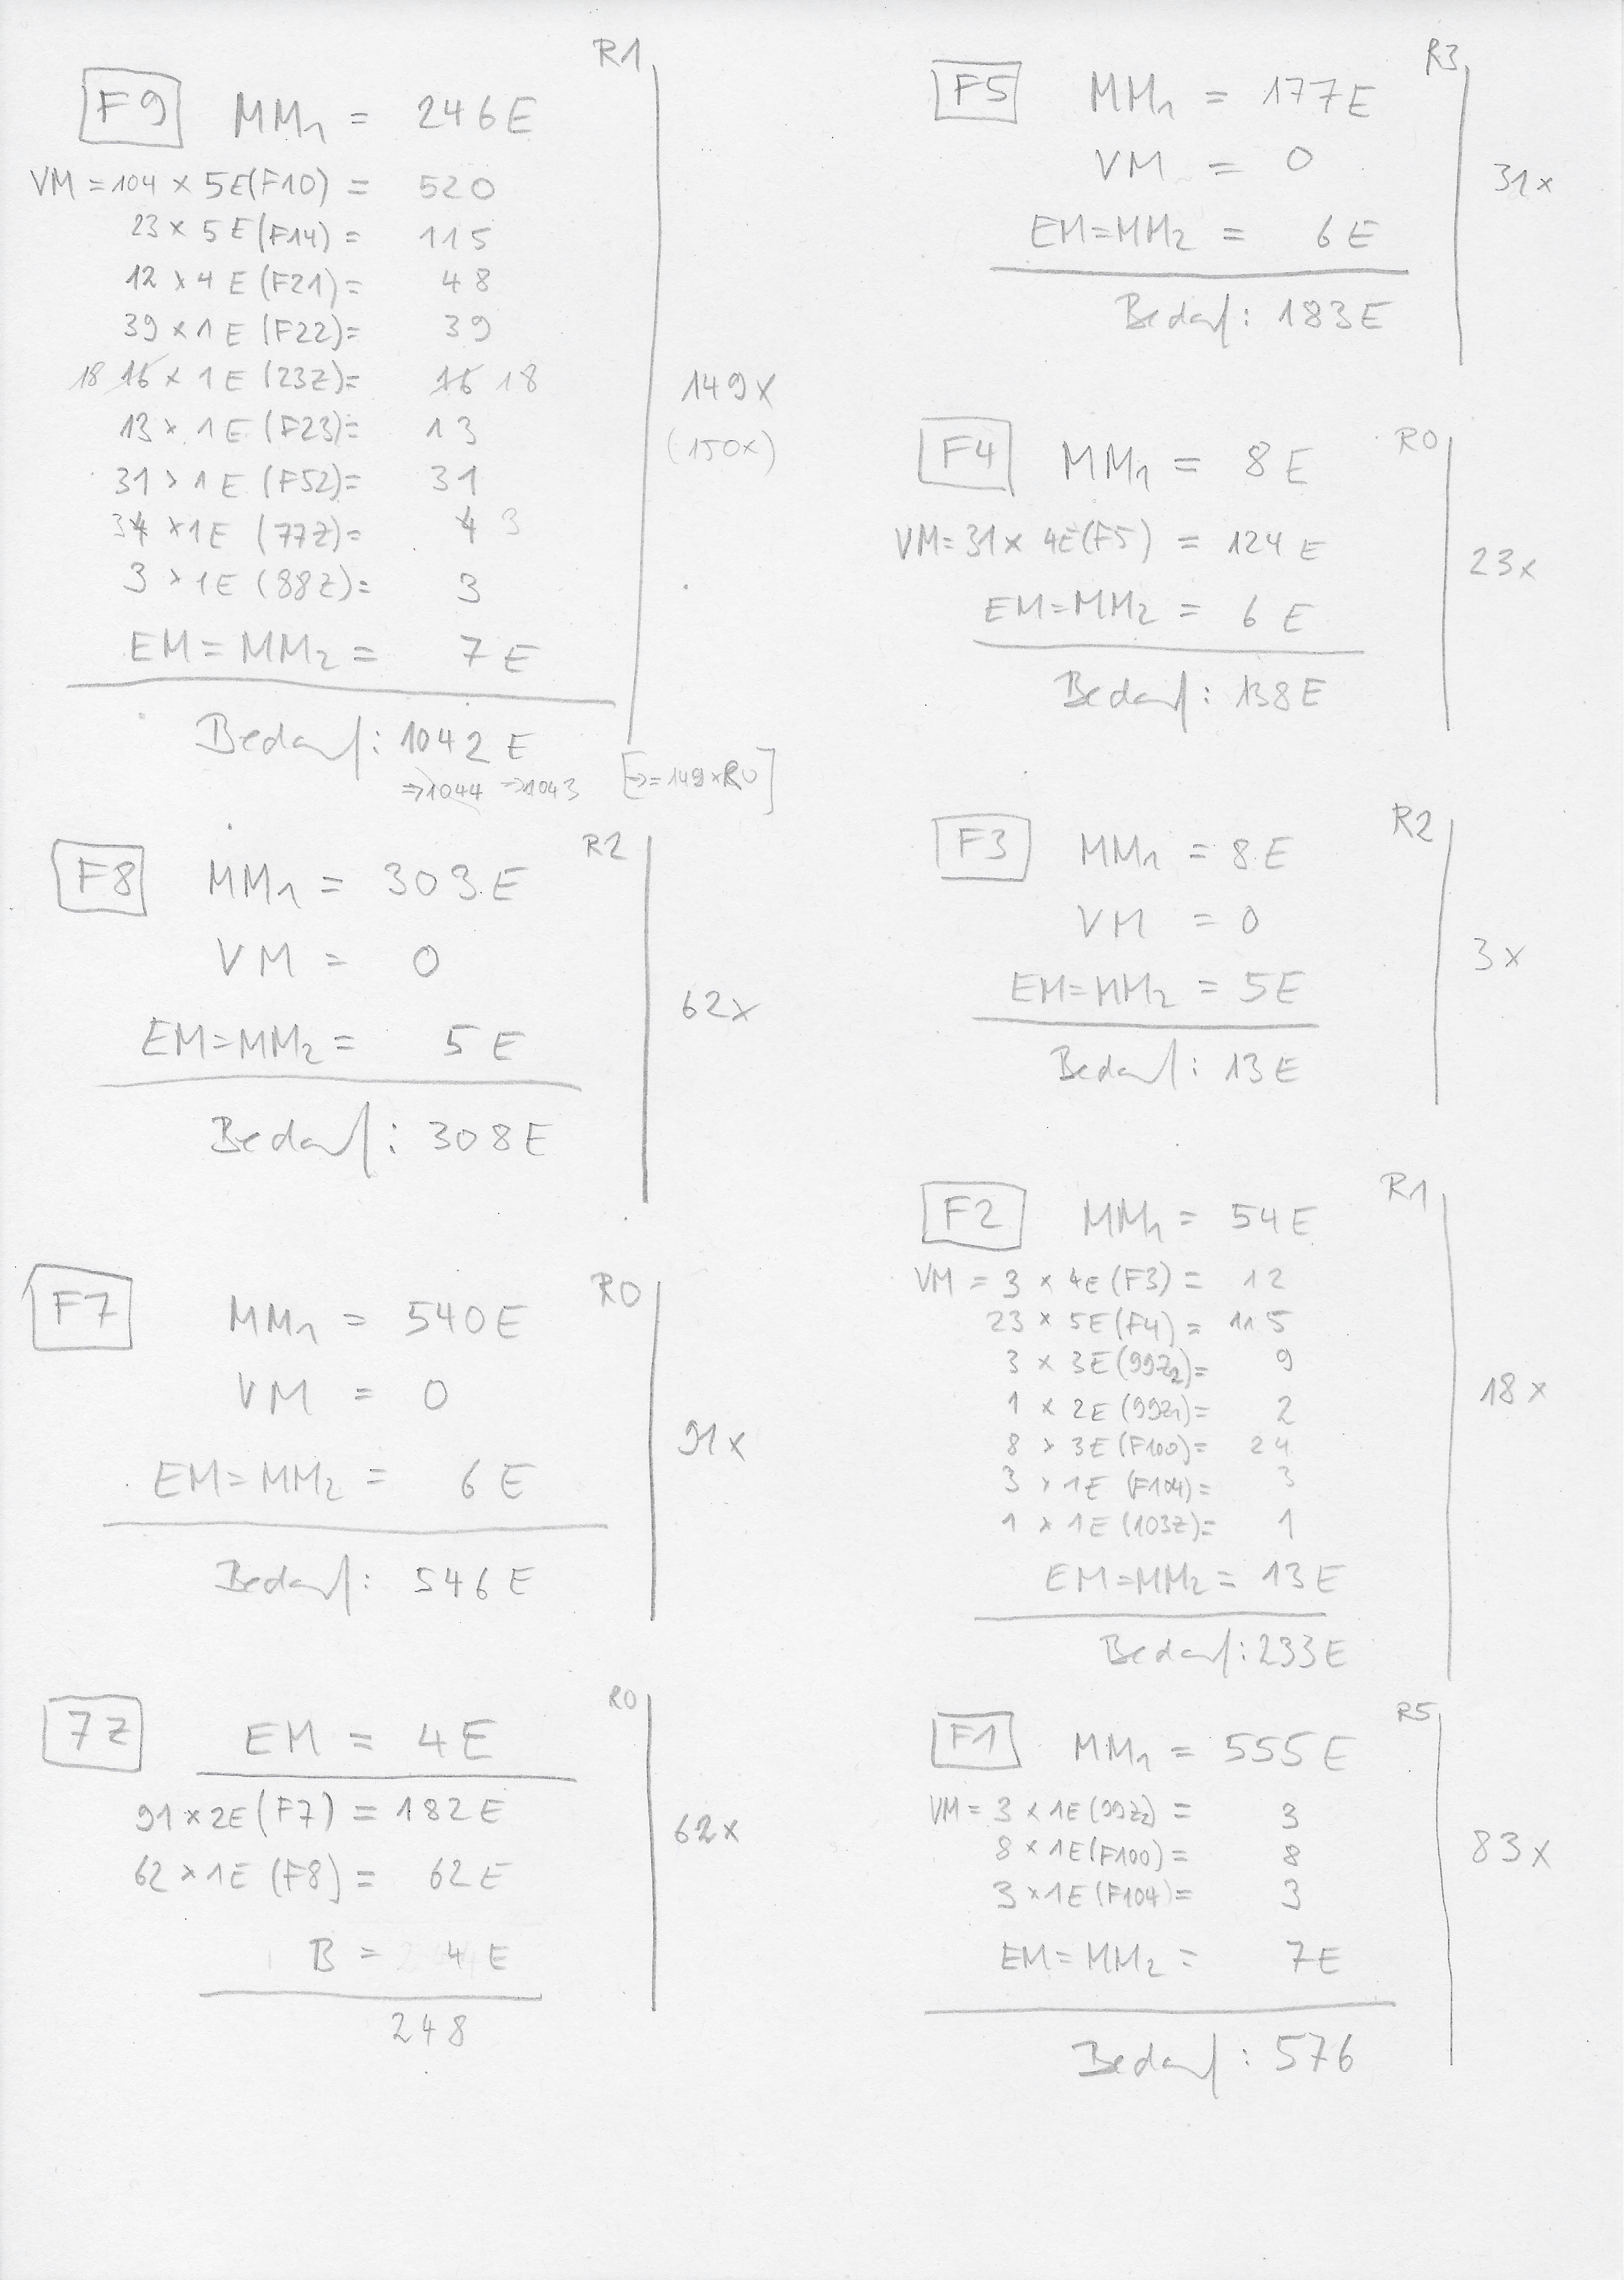 R1
F9 MM1 = 246E
VM = 104 x 5E(F10) = 520
23 x 5E(F14) = 115
12 x 4E(F21) = 48
39 x 1E(F22) = 39
18 16 x 1E(23Z) = 16 18
13 x 1E(F23) = 13
31 x 1E(F52) = 31
34 x 1E(77Z) = 4 3
3 x 1E(88Z) = 3
EM = MM2 = 7E
149x
(150x)
Bedarf: 1042E
⇒1044 ⇒1043 [⇒ = 149 x R0]
R2
F8 MM1 = 303E
VM = 0
EM = MM2 = 5E
62x
Bedarf: 308E
R0
F7 MM1 = 540E
VM = 0
EM = MM2 = 6E
91x
Bedarf: 546E
R0
7Z EM = 4E
91 x 2E(F7) = 182E
62 x 1E(F8) = 62E
62x
B = 4E
248
R3
F5 MM1 = 177E
VM = 0
31x
EM = MM2 = 6E
Bedarf: 183E
R0
F4 MM1 = 8E
VM = 31 x 4E(F5) = 124E
23x
EM = MM2 = 6E
Bedarf: 138E
R2
F3 MM1 = 8E
VM = 0
3x
EM = MM2 = 5E
Bedarf: 13E
R1
F2 MM1 = 54E
VM = 3 x 4E(F3) = 12
23 x 5E(F4) = 115
3 x 3E(99Z2) = 9
1 x 2E(99Z1) = 2
18x
8 x 3E(F100) = 24
3 x 1E(F104) = 3
1 x 1E(103Z) = 1
EM = MM2 = 13E
Bedarf: 233E
R5
F1 MM1 = 555E
VM = 3 x 1E(99Z2) = 3
8 x 1E(F100) = 8
83x
3 x 1E(F104) = 3
EM = MM2 = 7E
Bedarf: 576